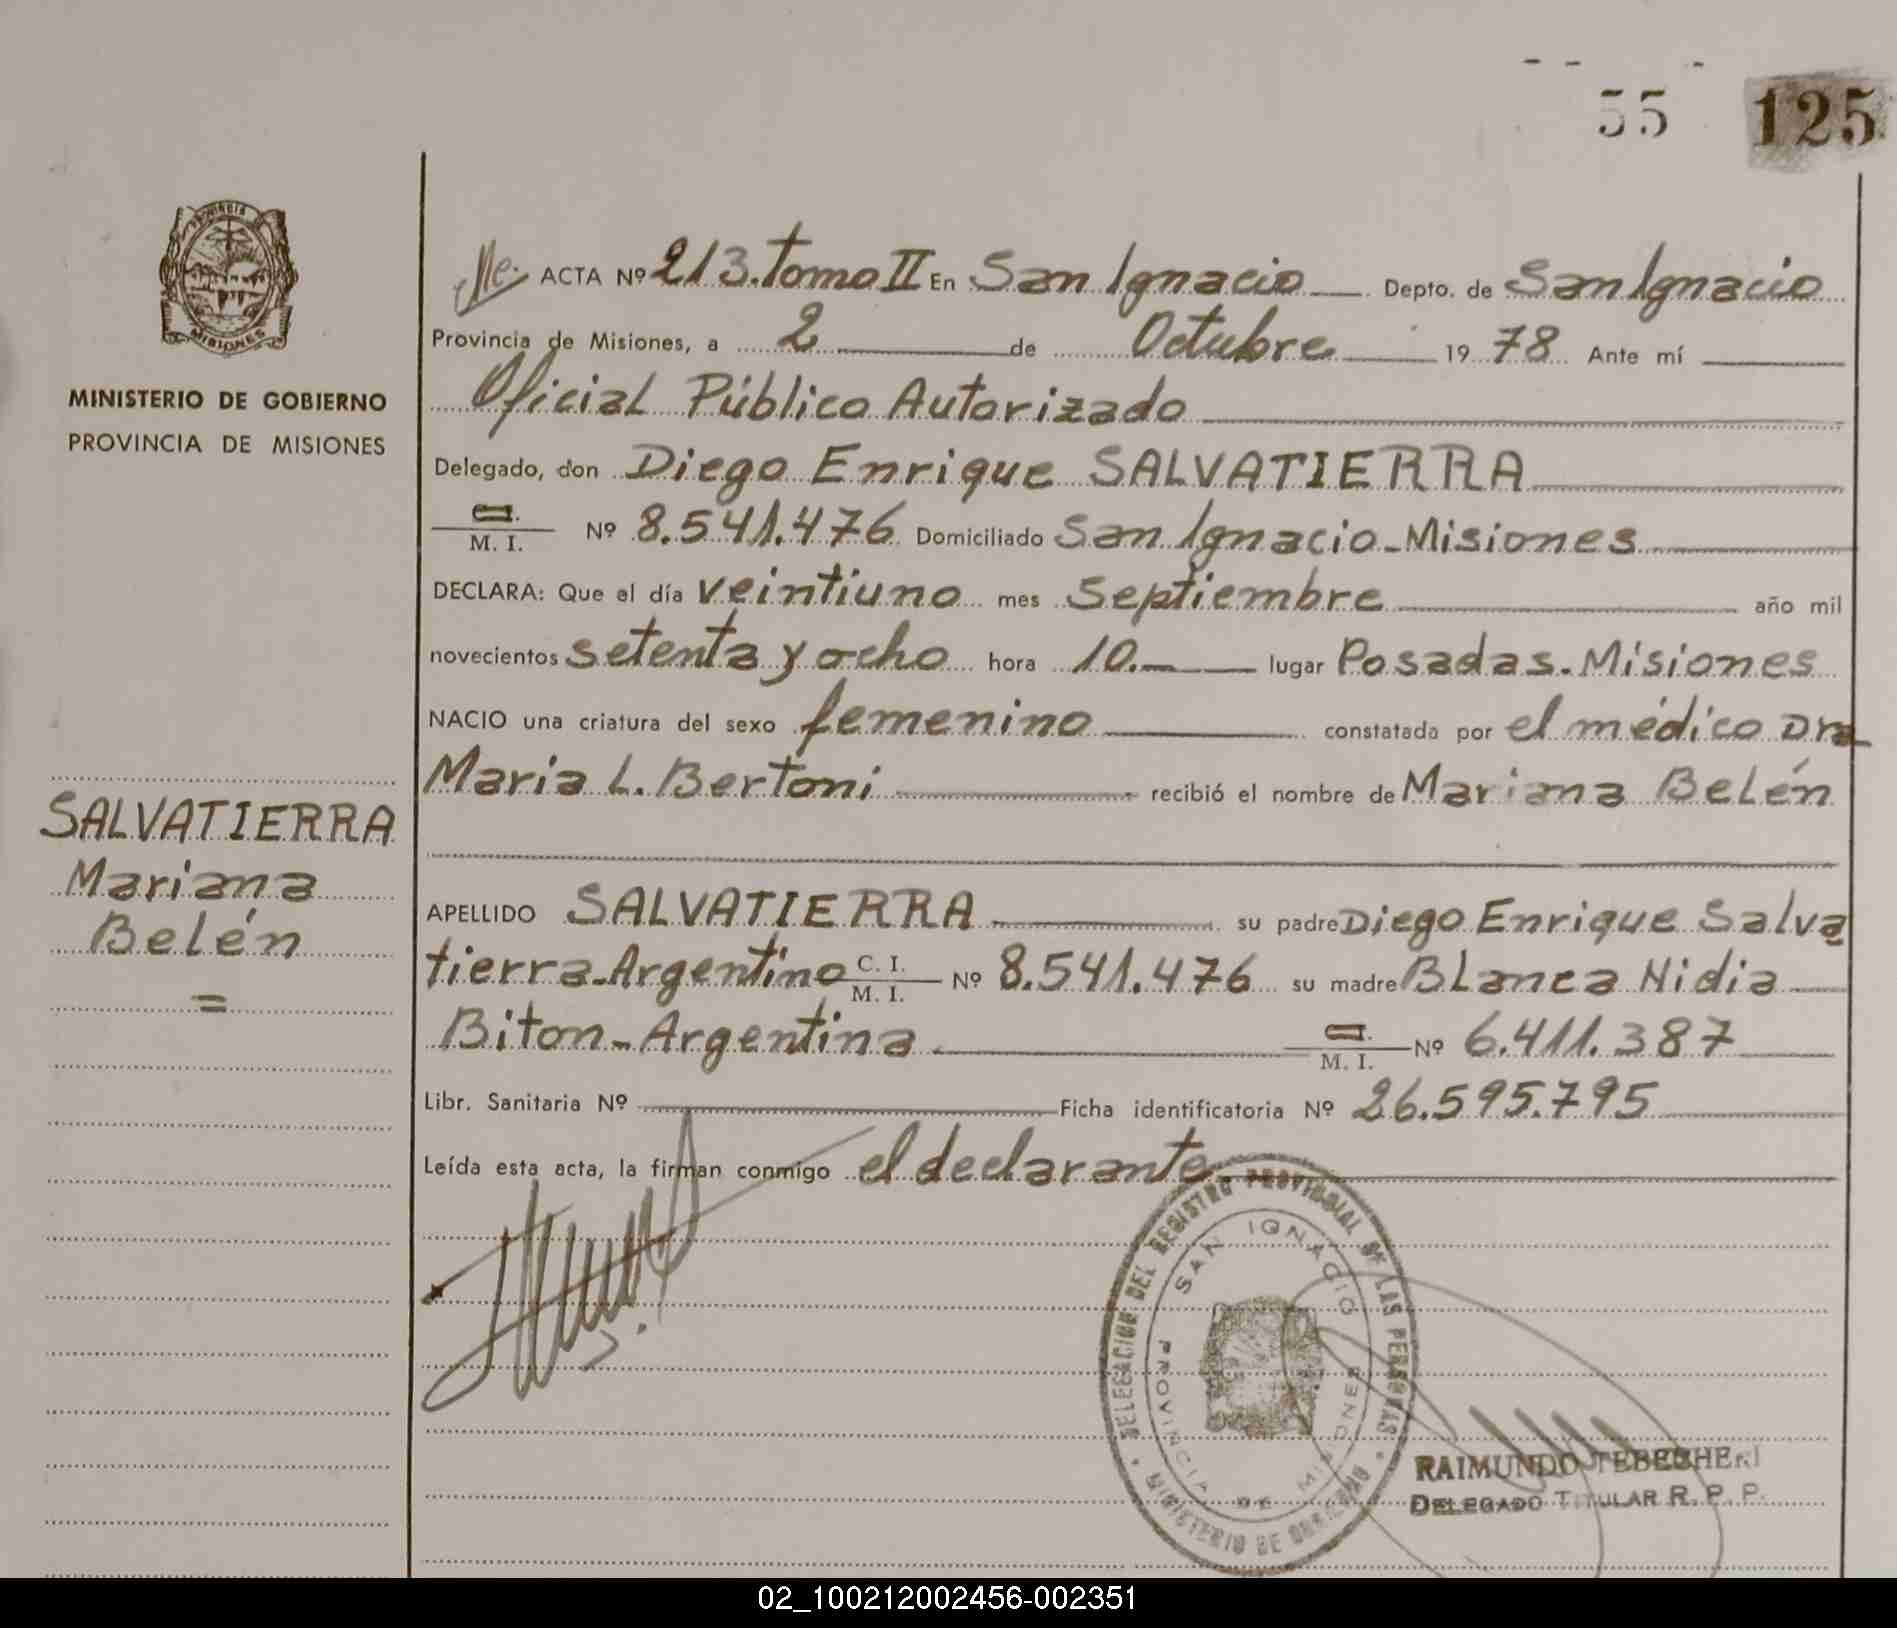 55 125
PROVINCIA
MISIONES
MINISTERIO DE GOBIERNO
PROVINCIA DE MISIONES
SALVATIERRA
Mariana
Belén
=
ACTA Nº 213. Tomo II En San Ignacio Depto. de San Ignacio
Provincia de Misiones, a 2 de Octubre 19 78 Ante mí
Oficial Público Autorizado
Delegado, don Diego Enrique SALVATIERRA
C.I. / M. I. Nº 8.541.476 Domiciliado San Ignacio-Misiones
DECLARA: Que el día veintiuno mes Septiembre año mil
novecientos setenta y ocho hora 10.— lugar Posadas-Misiones
NACIO una criatura del sexo femenino constatada por el médico Dra
Maria L. Bertoni recibió el nombre de Mariana Belén
APELLIDO SALVATIERRA su padre Diego Enrique Salva
tierra-Argentino C. I. / M. I. Nº 8.541.476 su madre Blanca Nidia
Biton-Argentina C.I. / M. I. Nº 6.411.387
Libr. Sanitaria Nº Ficha identificatoria Nº 26.595.795
Leída esta acta, la firman conmigo el declarante
DELEGACION DEL REGISTRO PROVINCIAL DE LAS PERSONAS
SAN IGNACIO
PROVINCIA DE MISIONES
MINISTERIO DE GOBIERNO
RAIMUNDO
DELEGADO TITULAR R. P. P.
02_100212002456-002351